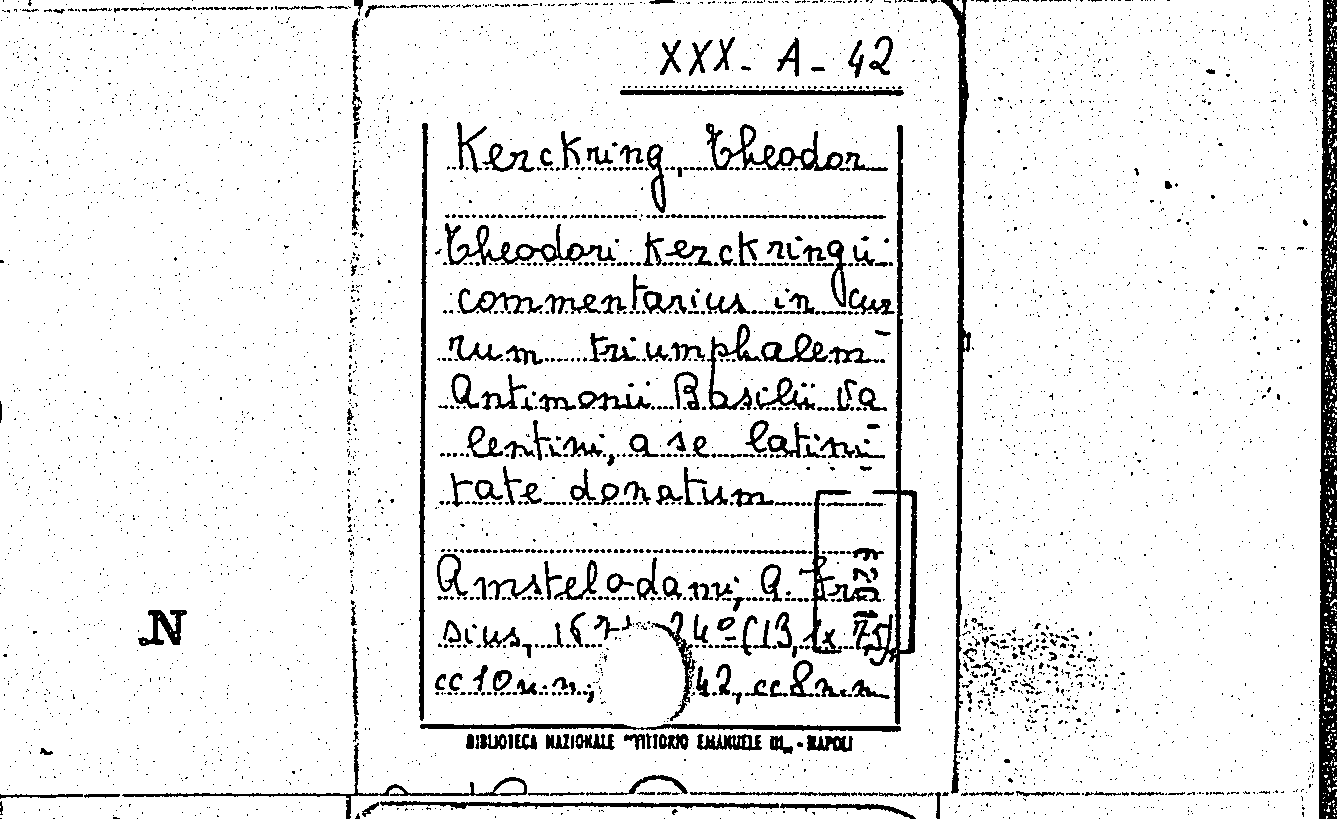 XXX - A - 42
Kerckring, Theodor
Theodori Kerckringii
commentarius in cur
rum triumphalem
Antimonii Basilii Va
lentini, a se latini
tate donatum
Amstelodami, A. Fri
sius, 24º (13,1x7,5),
cc 10 n.n., 42, cc 8 n.n.
BIBLIOTECA NAZIONALE "VITTORIO EMANUELE III" - NAPOLI
N